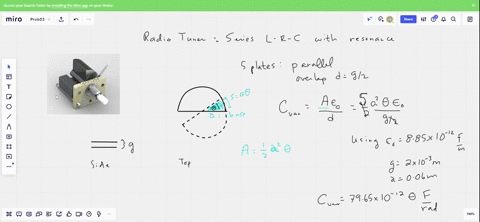 Access your boards faster by installing the Miro app on your device.
miro
Prob03
Share
Radio Tuner : Series L-R-C with resonance
5 plates: parallel
overlap d = g/2
C_var = Aε₀/d = 5/2 a²θε₀ / g/2
A = ½ a² θ
Using ε₀ = 8.85×10⁻¹² F/m
g = 2×10⁻³ m
a = 0.06m
C_var = 79.65×10⁻¹² θ F/rad
g
Side
Top